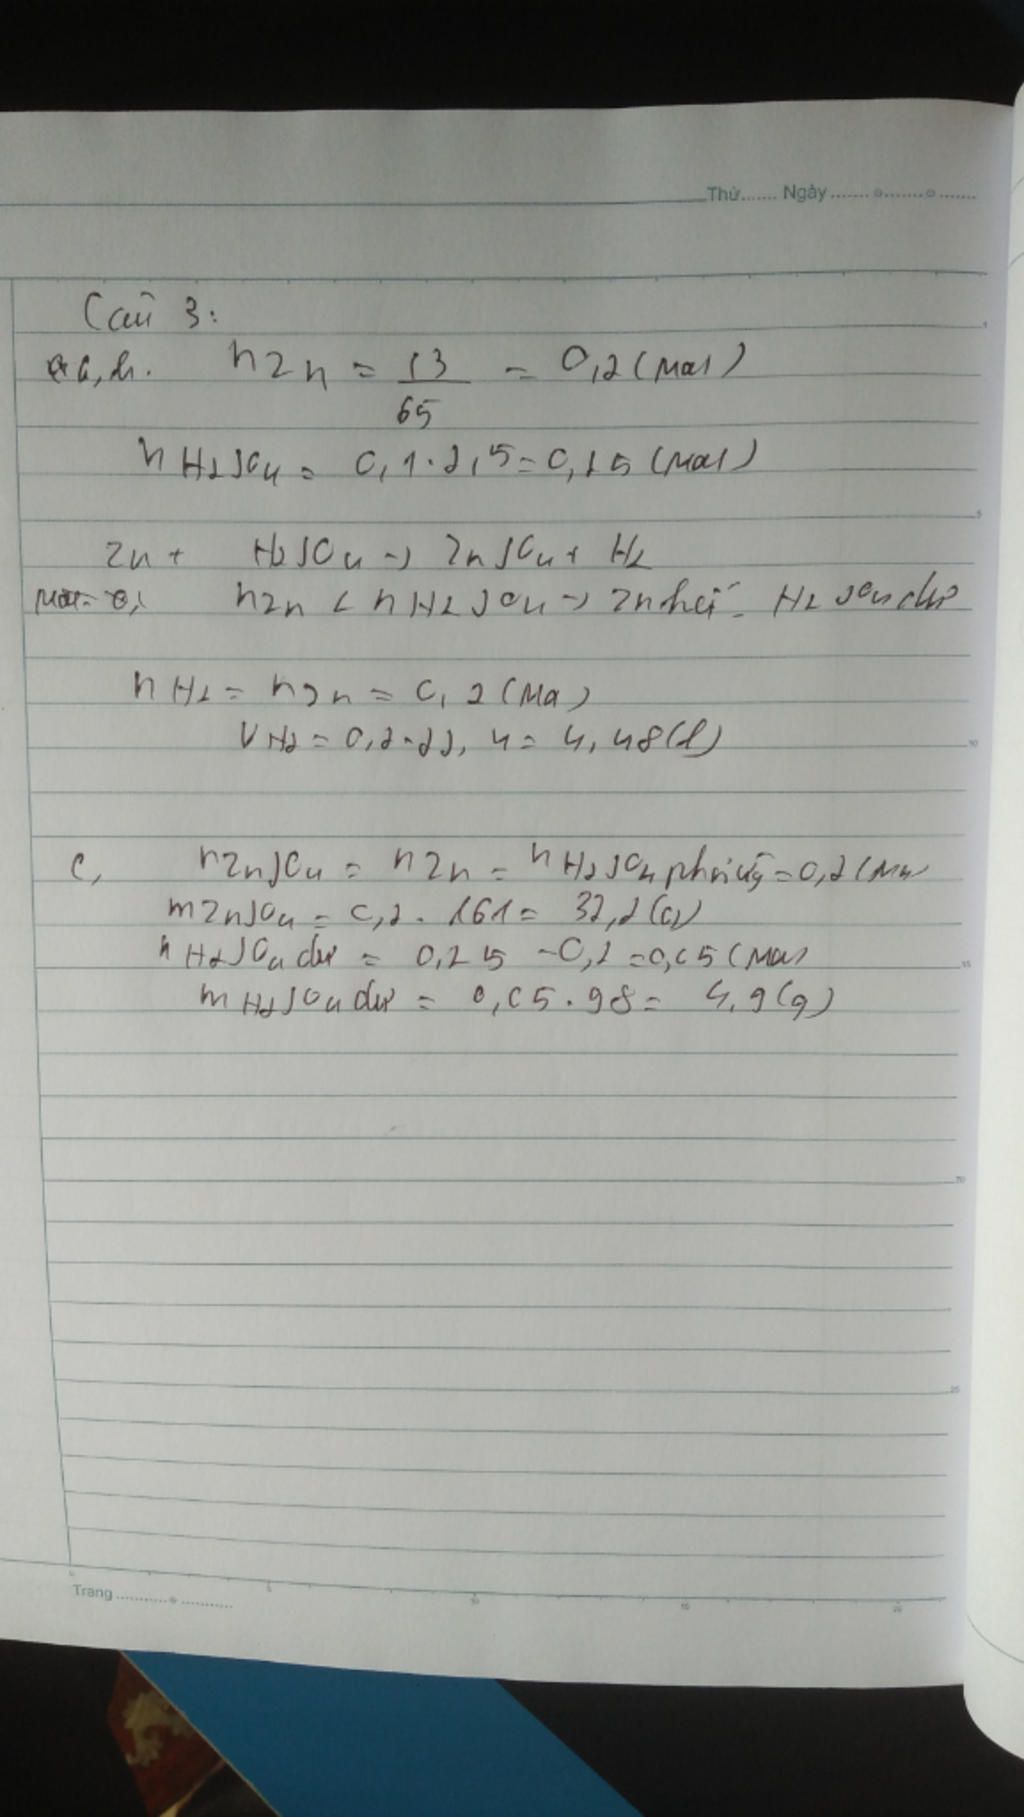 Thứ....... Ngày.......
Câu 3:
a, b. nZn = 13/65 = 0,2 (mol)
nH2SO4 = 0,1.2,5 = 0,25 (mol)
Zn + H2SO4 → ZnSO4 + H2
nZn < nH2SO4 → Zn hết - H2SO4 dư
nH2 = nZn = 0,2 (mol)
VH2 = 0,2.22,4 = 4,48 (l)
c, nZnSO4 = nZn = nH2SO4 phản ứng = 0,2 (mol
mZnSO4 = 0,2.161 = 32,2 (g)
nH2SO4 dư = 0,25 - 0,2 = 0,05 (mol)
mH2SO4 dư = 0,05.98 = 4,9 (g)
Trang